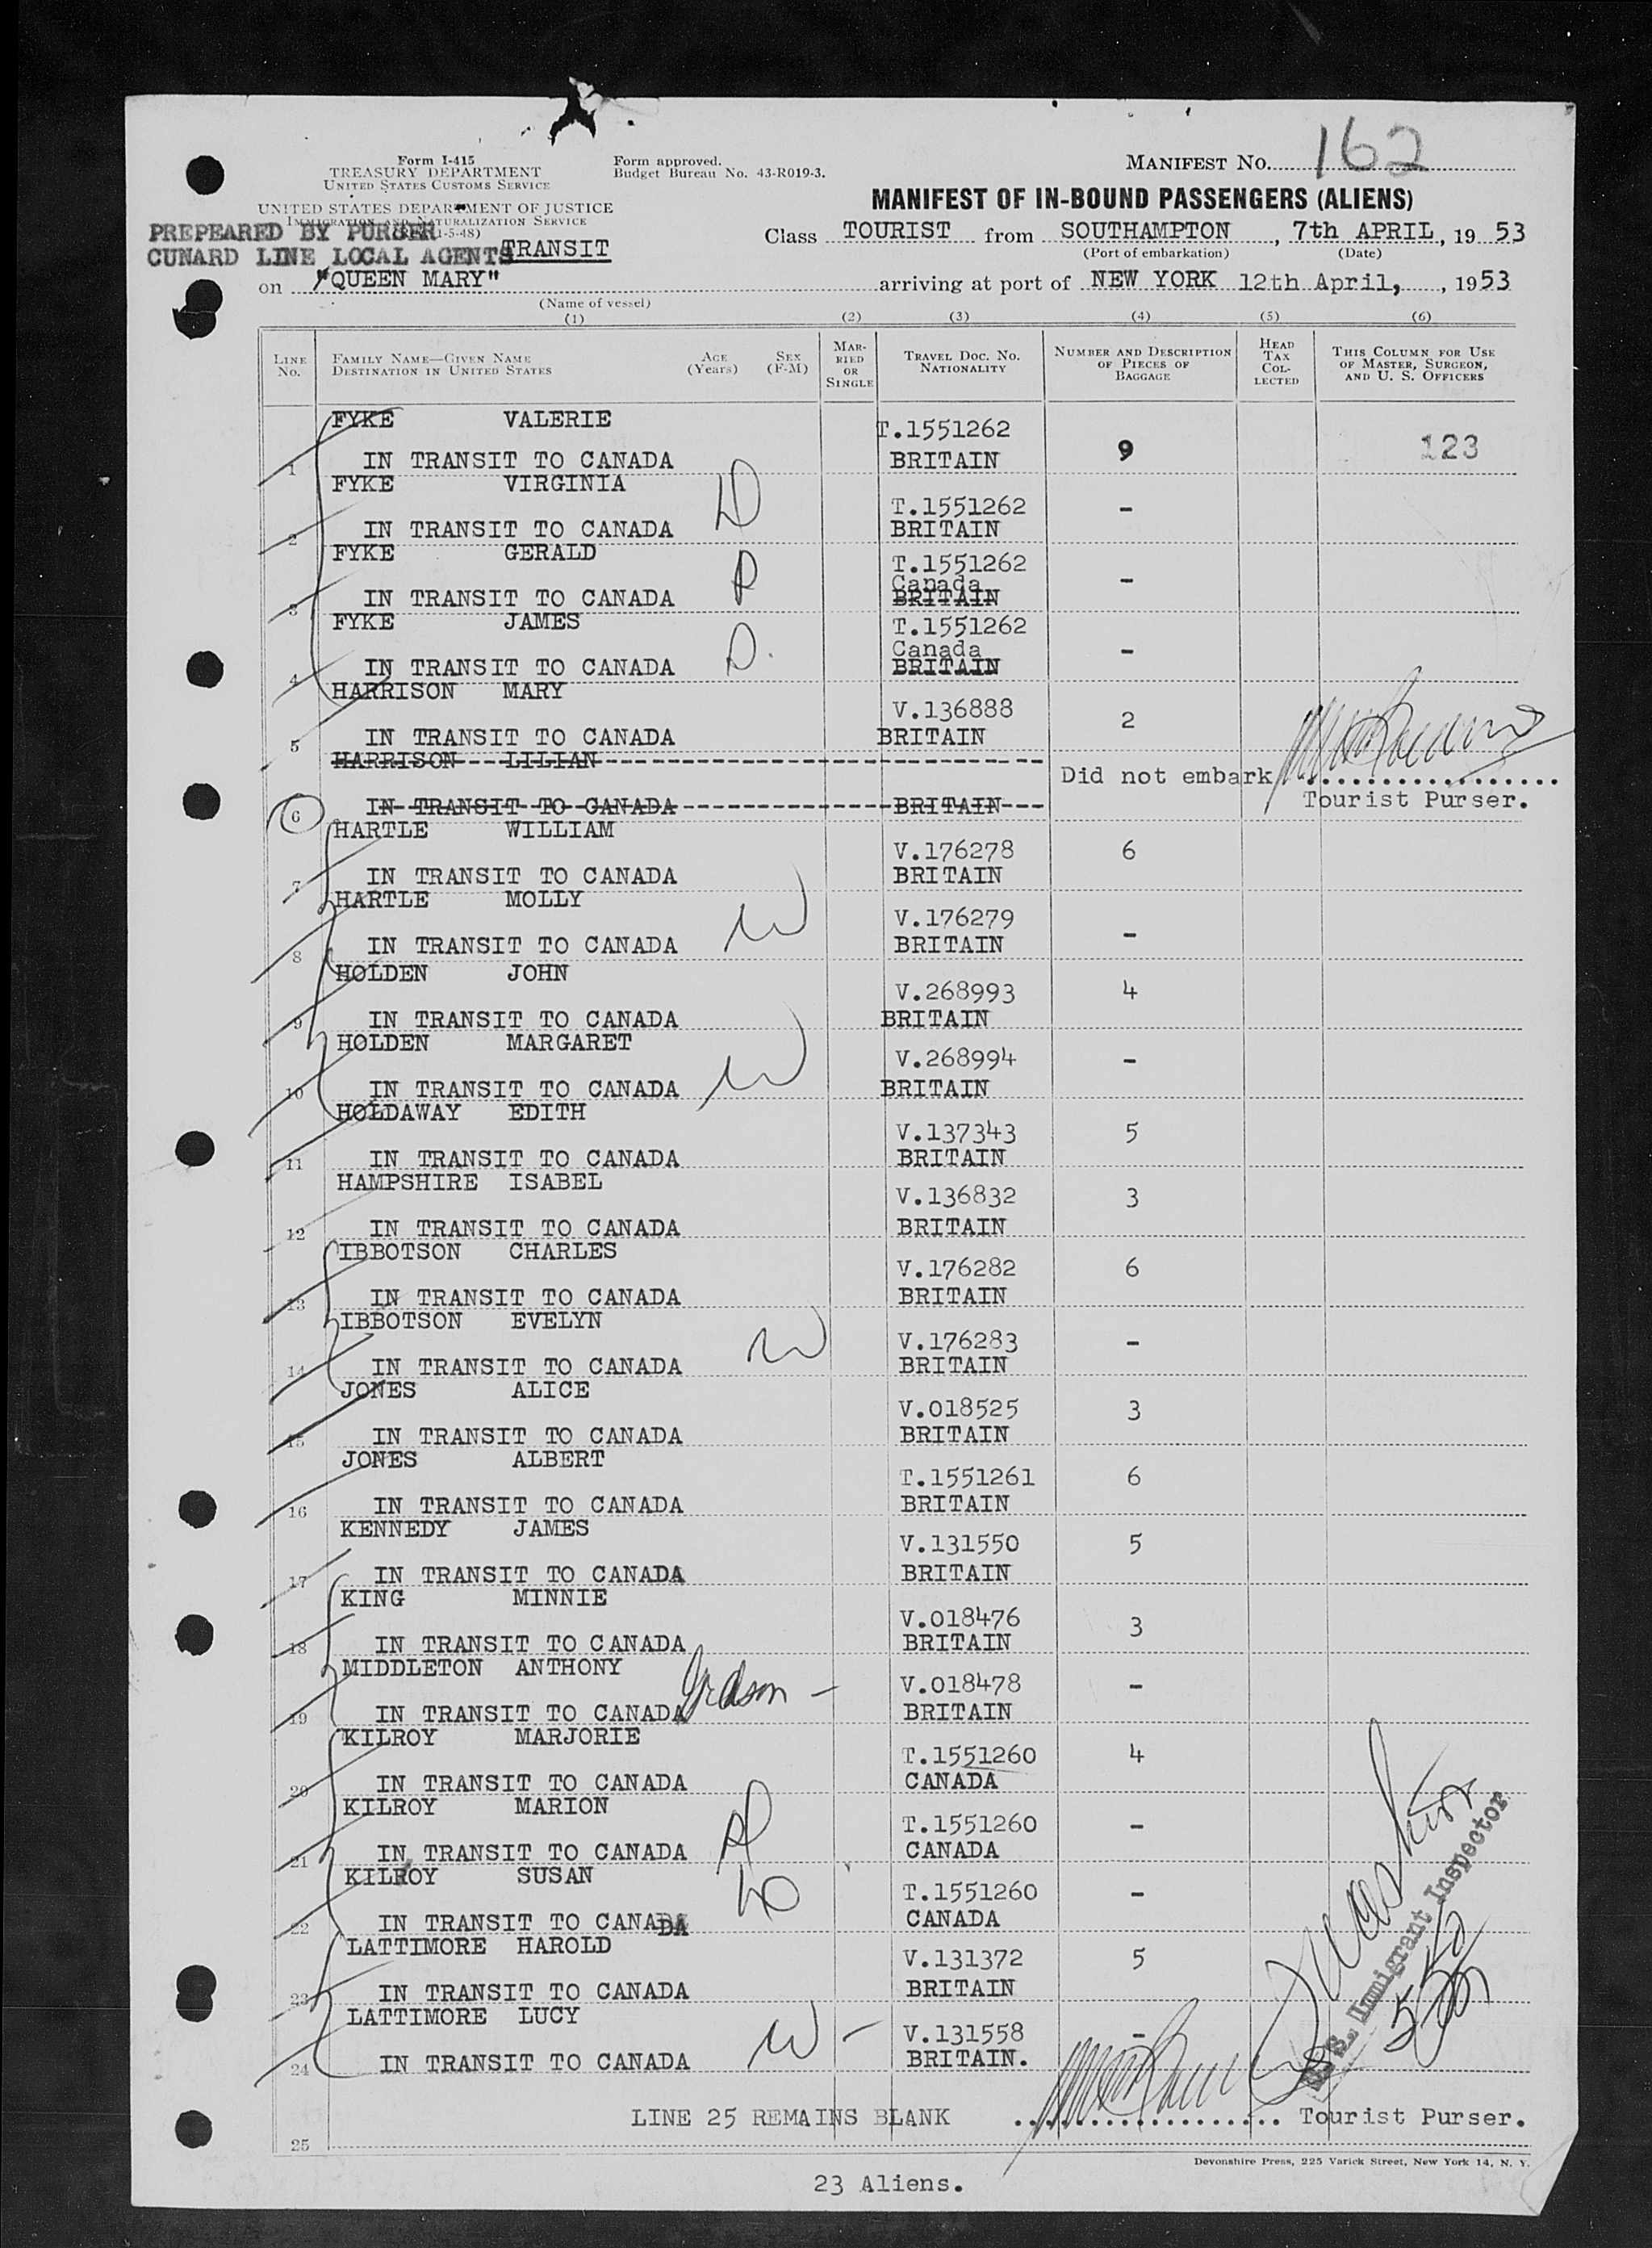 Form I-415
TREASURY DEPARTMENT
UNITED STATES CUSTOMS SERVICE
UNITED STATES DEPARTMENT OF JUSTICE
IMMIGRATION AND NATURALIZATION SERVICE
1-5-48)
PREPEARED BY PURSER
CUNARD LINE LOCAL AGENTS
TRANSIT
Form approved.
Budget Bureau No. 43-R019-3.
MANIFEST No. 162
MANIFEST OF IN-BOUND PASSENGERS (ALIENS)
Class TOURIST from SOUTHAMPTON, 7th APRIL, 19 53
(Port of embarkation) (Date)
on "QUEEN MARY" arriving at port of NEW YORK 12th April, , 1953
(Name of vessel)
(1) (2) (3) (4) (5) (6)
LINE No. FAMILY NAME—GIVEN NAME DESTINATION IN UNITED STATES AGE (Years) SEX (F-M) MARRIED OR SINGLE TRAVEL DOC. NO. NATIONALITY NUMBER AND DESCRIPTION OF PIECES OF BAGGAGE HEAD TAX COLLECTED THIS COLUMN FOR USE OF MASTER, SURGEON, AND U. S. OFFICERS
FYKE VALERIE T.1551262
1 IN TRANSIT TO CANADA BRITAIN 9 123
FYKE VIRGINIA T.1551262
2 IN TRANSIT TO CANADA D BRITAIN -
FYKE GERALD T.1551262
Canada
3 IN TRANSIT TO CANADA BRITAIN -
FYKE JAMES T.1551262
Canada
4 IN TRANSIT TO CANADA D. BRITAIN -
HARRISON MARY V.136888
5 IN TRANSIT TO CANADA BRITAIN 2
HARRISON LILIAN
Did not embark
6 IN TRANSIT TO CANADA BRITAIN Tourist Purser.
HARTLE WILLIAM V.176278 6
7 IN TRANSIT TO CANADA BRITAIN
HARTLE MOLLY V.176279
8 IN TRANSIT TO CANADA W BRITAIN -
HOLDEN JOHN V.268993 4
9 IN TRANSIT TO CANADA BRITAIN
HOLDEN MARGARET V.268994 -
10 IN TRANSIT TO CANADA W BRITAIN
HOLDAWAY EDITH V.137343 5
11 IN TRANSIT TO CANADA BRITAIN
HAMPSHIRE ISABEL V.136832 3
12 IN TRANSIT TO CANADA BRITAIN
IBBOTSON CHARLES V.176282 6
13 IN TRANSIT TO CANADA BRITAIN
IBBOTSON EVELYN V.176283 -
14 IN TRANSIT TO CANADA W BRITAIN
JONES ALICE V.018525 3
15 IN TRANSIT TO CANADA BRITAIN
JONES ALBERT T.1551261 6
16 IN TRANSIT TO CANADA BRITAIN
KENNEDY JAMES V.131550 5
17 IN TRANSIT TO CANADA BRITAIN
KING MINNIE V.018476 3
18 IN TRANSIT TO CANADA BRITAIN
MIDDLETON ANTHONY V.018478 -
19 IN TRANSIT TO CANADA Grdson - BRITAIN
KILROY MARJORIE T.1551260 4
20 IN TRANSIT TO CANADA CANADA
KILROY MARION T.1551260 -
21 IN TRANSIT TO CANADA CANADA
KILROY SUSAN T.1551260 -
22 IN TRANSIT TO CANADA CANADA
LATTIMORE HAROLD V.131372 5
23 IN TRANSIT TO CANADA BRITAIN
LATTIMORE LUCY V.131558 -
24 IN TRANSIT TO CANADA W - BRITAIN.
U. S. Immigrant Inspector
LINE 25 REMAINS BLANK Tourist Purser.
25
Devonshire Press, 225 Varick Street, New York 14, N. Y.
23 Aliens.